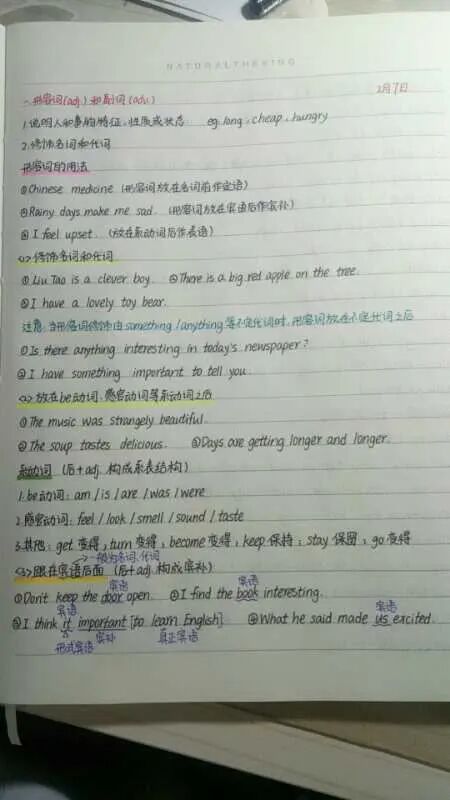 NATURALTHEKING
2月7日
一.形容词(adj.)和副词(adv.)
1.说明人和事的特征、性质或状态 eg.long、cheap、hungry
2.修饰名词和代词
形容词的用法
①Chinese medicine (形容词放在名词前作定语)
②Rainy days make me sad. (形容词放在宾语后作宾补)
③I feel upset. (放在系动词后作表语)
<1>修饰名词和代词
①Liu Tao is a clever boy. ②There is a big red apple on the tree.
③I have a lovely toy bear.
注意:当形容词修饰由something/anything等不定代词时,形容词放在不定代词之后
①Is there anything interesting in today's newspaper?
②I have something important to tell you.
<2>放在be动词、感官动词等系动词之后
①The music was strangely beautiful.
②The soup tastes delicious. ③Days are getting longer and longer.
系动词 (后+adj.构成系表结构)
1.be动词: am/is/are/was/were
2.感官动词: feel/look/smell/sound/taste
3.其他: get 变得, turn 变得, become 变得, keep 保持, stay 保留, go 变得
→一般为名词、代词
<3>跟在宾语后面 (后+adj.构成宾补)
宾语 宾语
①Don't keep the door open. ②I find the book interesting.
宾语 宾语
③I think it important [to learn English] ④What he said made us excited.
形式宾语 宾补 真正宾语